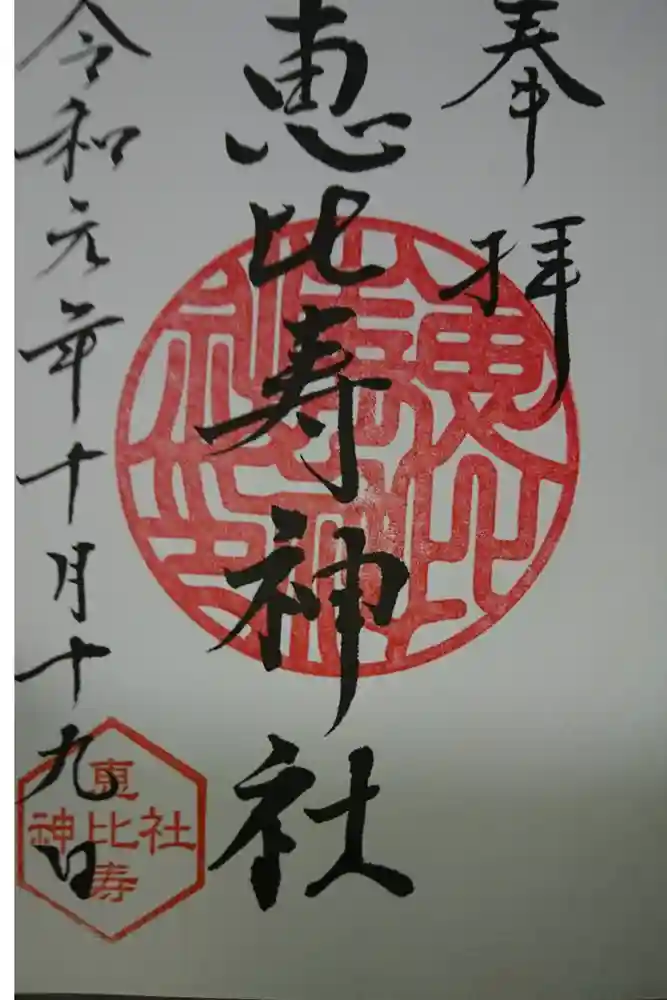 奉拝
恵比寿神社
令和元年十月十九日
恵比寿神社